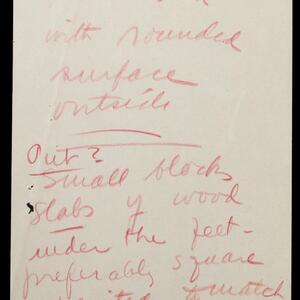 with rounded
surface
outside
Put?
Small blocks
slabs of wood
under the feet-
preferably square
to match